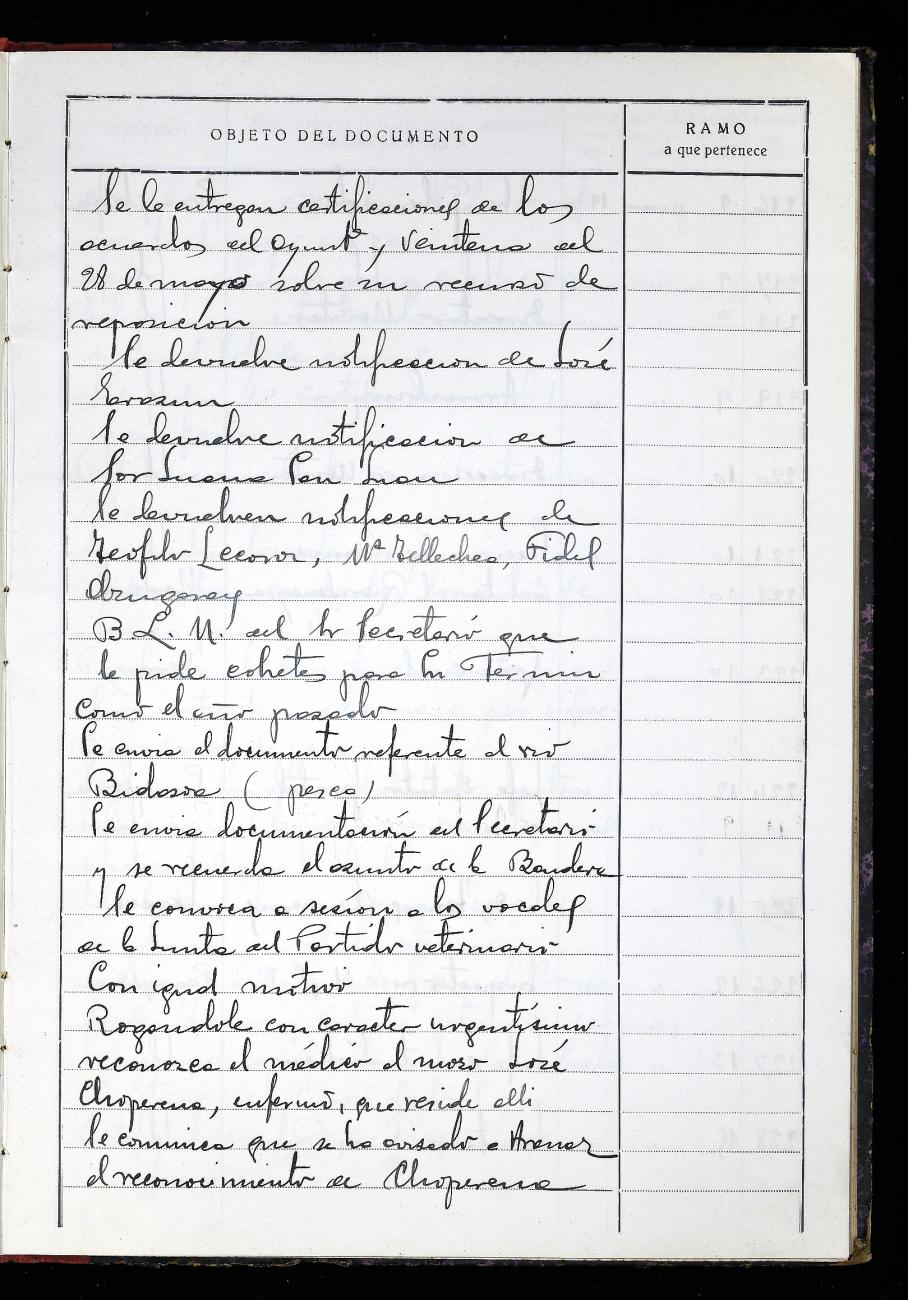 OBJETO DEL DOCUMENTO
RAMO
a que pertenece
Se le entregan certificaciones de los
acuerdos del Ayuntº y Veintena del
28 de mayo sobre su recurso de
reposicion
Se devuelve notificacion de José
Erasun
Se devuelve notificacion de
Sor Juana San Juan
Se devuelven notificaciones de
Teofilo Lecoroz, Mª Tellechea, Fidel
B. L. M. del Sr Secretario que
le pide cohetes para Sn Fermin
como el año pasado
Se envia el documento referente al rio
Bidasoa (pesca)
Se envia documentación del Secretario
y se recuerda el asunto de la Bandera
Se convoca a sesión a los vocales
de la Junta del Partido veterinario
Con igual motivo
Rogandole con caracter urgentisimo
reconozca el médico al mozo José
Choperena, enfermo, que reside alli
Se comunica que se ha avisado a Aranaz
el reconocimiento de Choperena